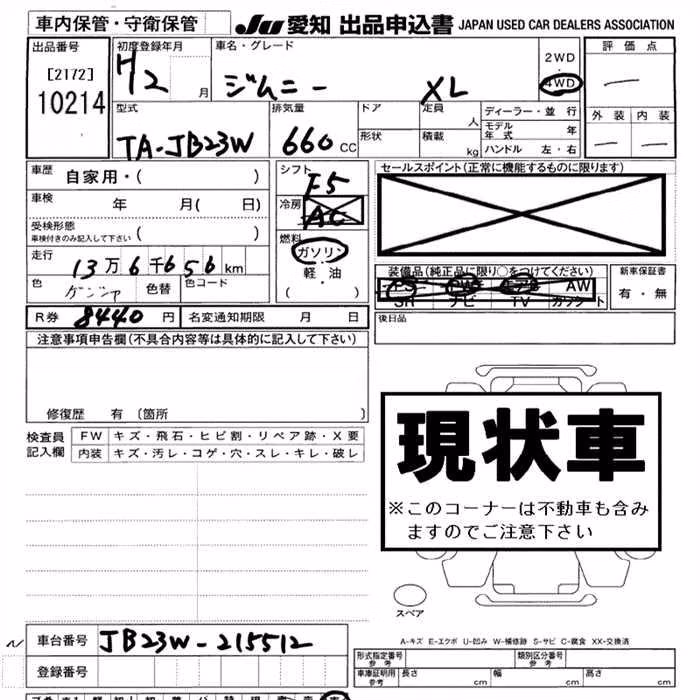 車内保管・守衛保管
JU 愛知 出品申込書 JAPAN USED CAR DEALERS ASSOCIATION
出品番号
[2172]
10214
初度登録年月
H2 月
車名・グレード
ジムニー XL
2WD
4WD
評価点
外装 内装
型式
TA-JB23W
排気量
660 CC
ドア
形状
定員 人
積載 kg
ディーラー・並行
モデル年式 年
ハンドル 左・右
車歴 自家用・( )
車検 年 月( 日)
受検形態
車検付きのみ記入して下さい ( )
走行
13万6千656km
色 色替 色コード
シフト
F5
冷房
AC
燃料
ガソリン
・
軽・油
( )
セールスポイント(正常に機能するものに限ります)
装備品(純正品に限り○をつけてください)
PS PW エアB AW
SR ナビ TV カワシート
新車保証書
有・無
R券 8440 円
名変通知期限 月 日
後日品
注意事項申告欄(不具合内容等は具体的に記入して下さい)
修復歴 有 〔箇所 〕
検査員
記入欄
FW キズ・飛石・ヒビ割・リペア跡・X要
内装 キズ・汚レ・コゲ・穴・スレ・キレ・破レ
現状車
※このコーナーは不動車も含み
ますのでご注意下さい
スペア
A-キズ E-エクボ U-凹み W-補修跡 S-サビ C-腐食 XX-交換済
車台番号 JB23W-215512
登録番号
形式指定番号
参考
類別区分番号
参考
車庫証明用
参考
長さ cm 幅 cm 高さ cm